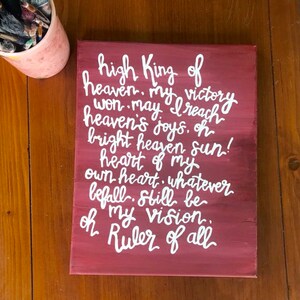 high King of
heaven, my victory
won, may I reach
heaven's joys, oh
bright heaven sun!
heart of my
own heart, whatever
befall, still be
my vision,
oh Ruler of all